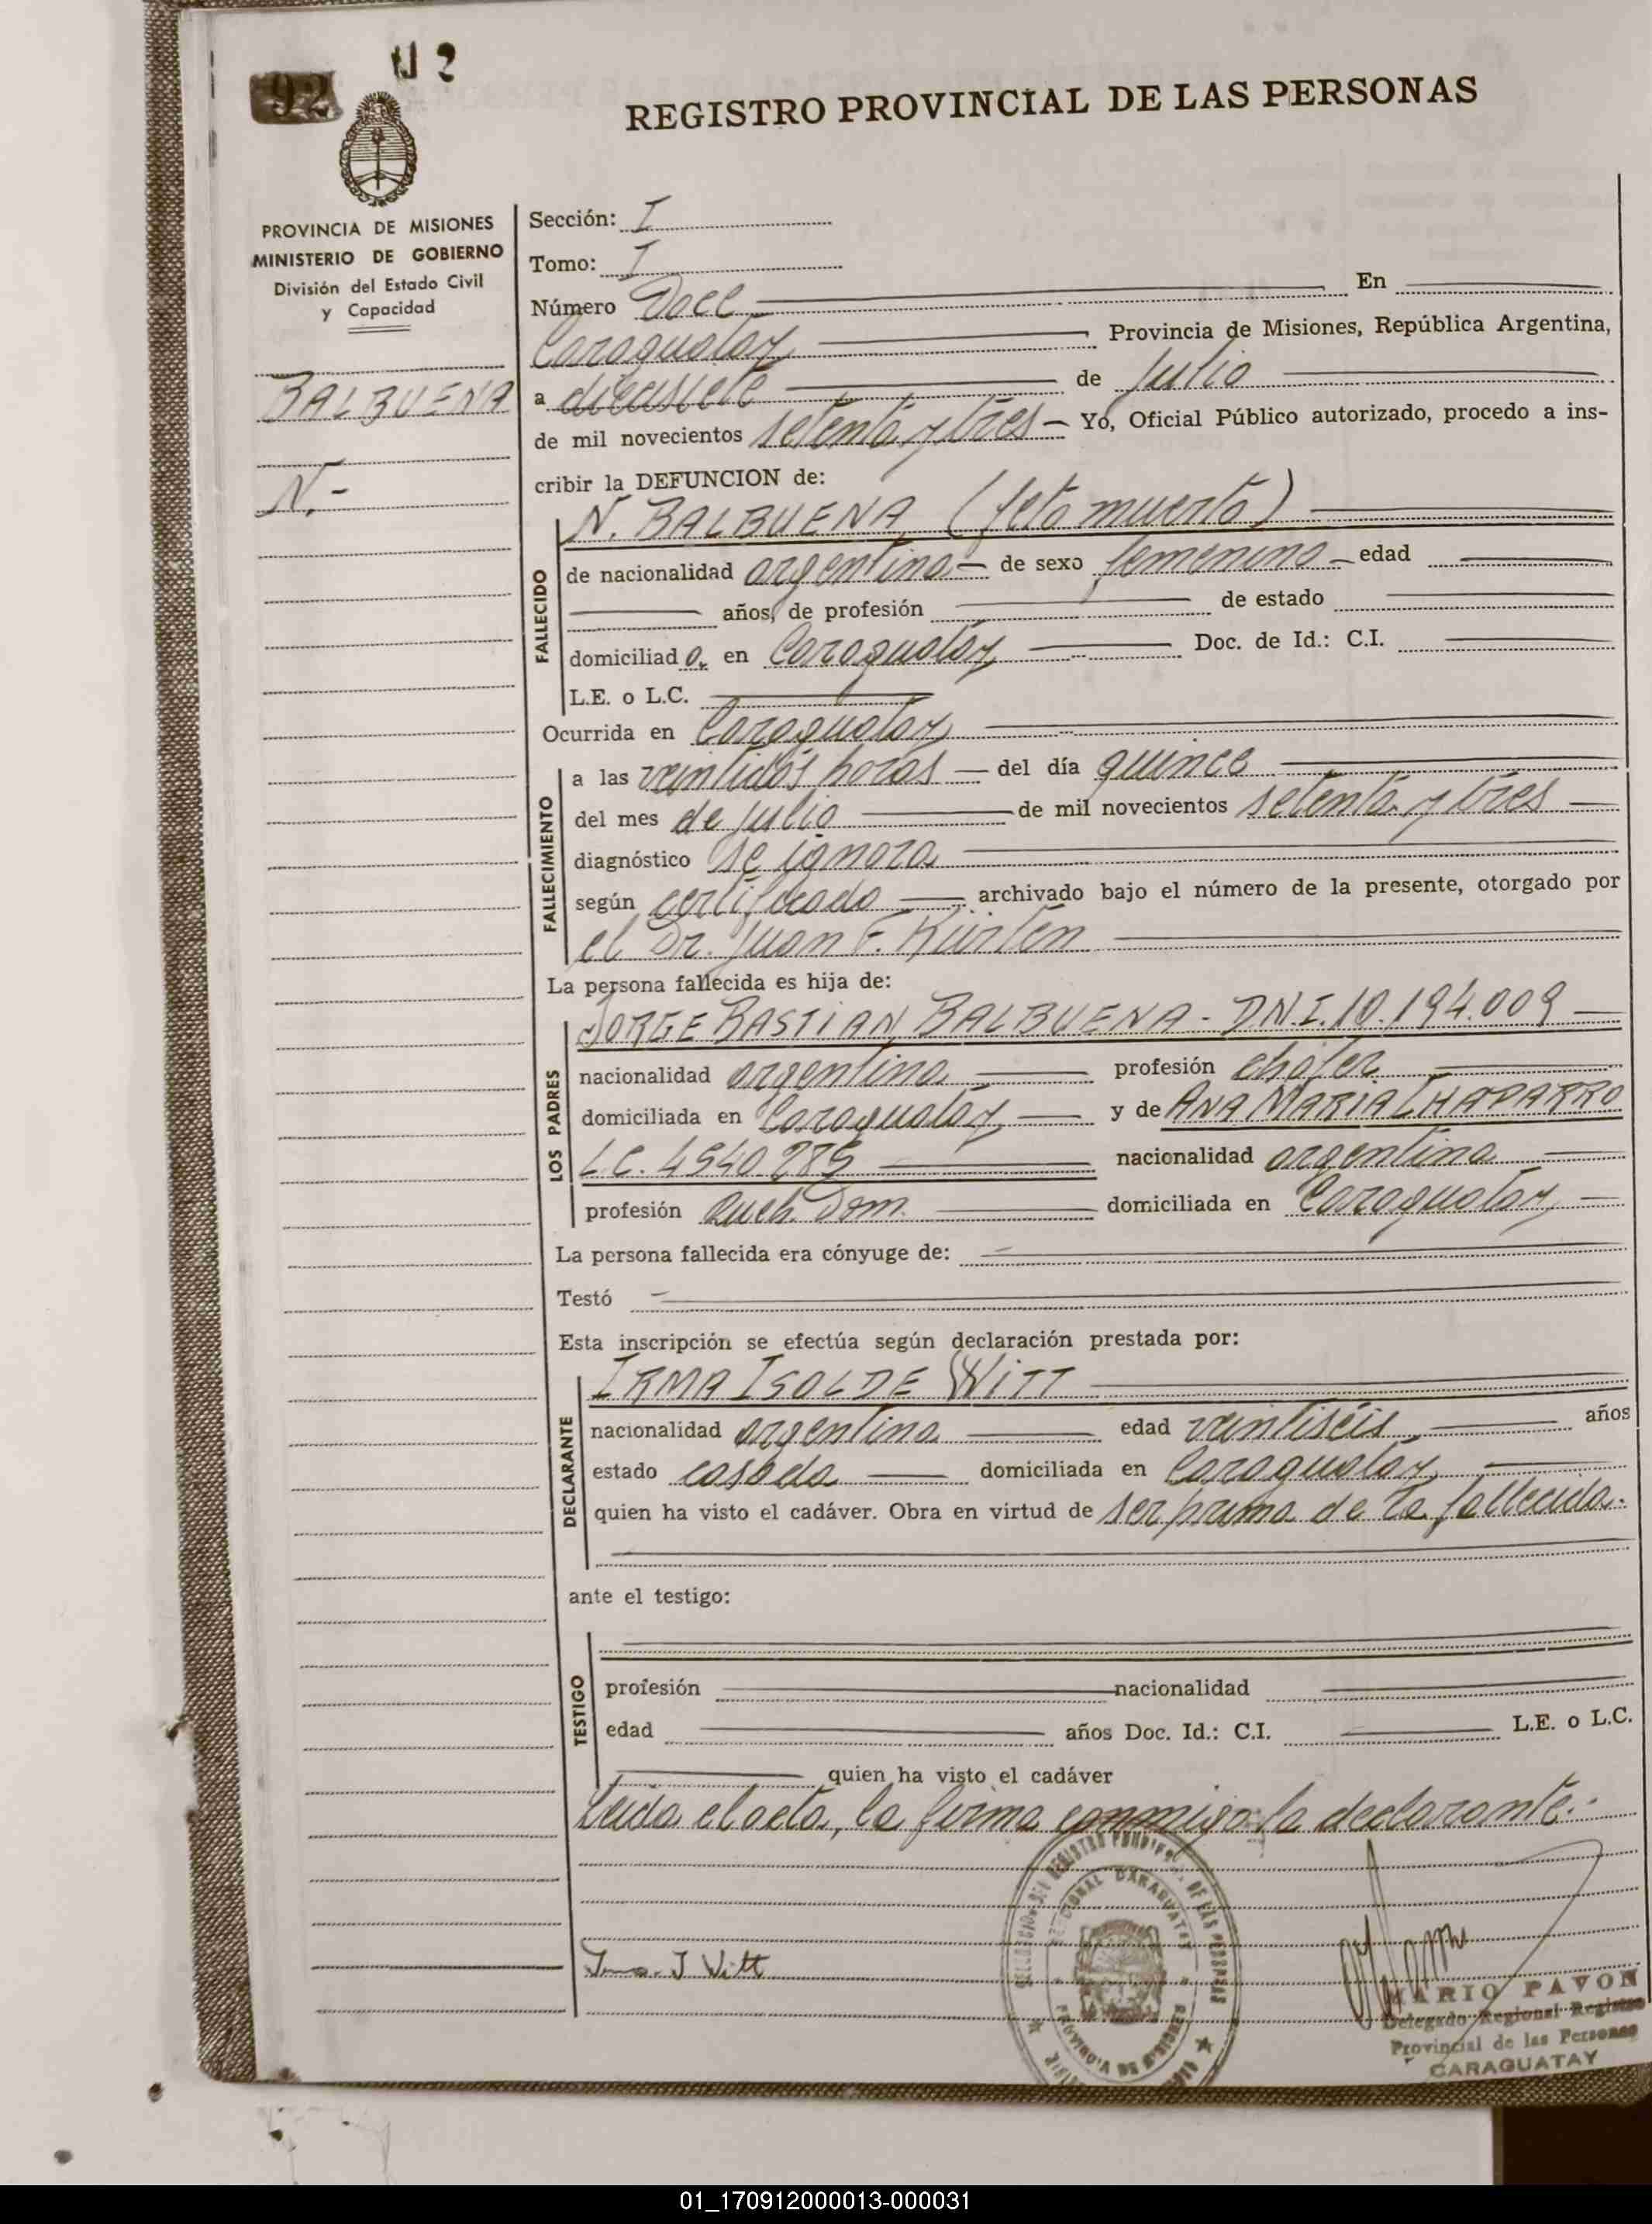 92
REGISTRO PROVINCIAL DE LAS PERSONAS
PROVINCIA DE MISIONES
MINISTERIO DE GOBIERNO
División del Estado Civil
y Capacidad
BALBUENA
N.-
Sección: I
Tomo: I
Número Doce En
Caraguatay Provincia de Misiones, República Argentina,
a diecisiete de julio
de mil novecientos setenta y tres Yo, Oficial Público autorizado, procedo a ins-
cribir la DEFUNCION de:
FALLECIDO
N. BALBUENA (feto muerto)
de nacionalidad argentina de sexo femenino edad
años, de profesión de estado
domiciliado. en Caraguatay Doc. de Id.: C.I.
L.E. o L.C.
Ocurrida en Caraguatay
FALLECIMIENTO
a las veintidós horas del día quince
del mes de julio de mil novecientos setenta y tres
diagnóstico se ignora
según certificado archivado bajo el número de la presente, otorgado por
el Dr. Juan F. Kürten
La persona fallecida es hija de:
LOS PADRES
JORGE BASTIAN BALBUENA - D.N.I. 10.194.009
nacionalidad argentina profesión chofer
domiciliada en Caraguatay y de ANA MARIA CHAPARRO
L.C. nacionalidad argentina
profesión Queh. Dom. domiciliada en Caraguatay
La persona fallecida era cónyuge de:
Testó
Esta inscripción se efectúa según declaración prestada por:
DECLARANTE
IRMA ISOLDE WITT
nacionalidad argentina edad veintiséis años
estado casada domiciliada en Caraguatay
quien ha visto el cadáver. Obra en virtud de ser prima de la fallecida.
ante el testigo:
TESTIGO
profesión nacionalidad
edad años Doc. Id.: C.I. L.E. o L.C.
quien ha visto el cadáver
Leida el acta, la firma conmigo la declarante.-
Irma. I Witt
MARIO PAVON
Delegado Regional Registro
Provincial de las Personas
CARAGUATAY
01_170912000013-000031